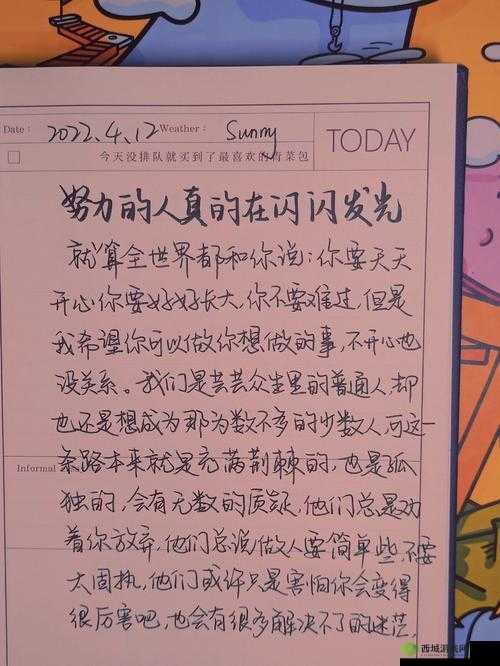 Date: 2022.4.12 Weather: Sunny
TODAY
今天没排队就买到了最喜欢的青菜包
努力的人真的在闪闪发光
就算全世界都和你说：你要天天
开心你要好好长大，你不要难过，但是
我希望你可以做你想做的事，不开心也
没关系。我们是芸芸众生里的普通人，却
也还是想成为那为数不多的少数人，可这一
Informal
条路本来就是充满荆棘的，也是孤
独的，会有无数的质疑，他们总是劝
着你放弃，他们总说做人要简单些，不要
太固执，他们或许只是害怕你会变得
很厉害吧，也会有很多解决不了的迷茫，
西城游戏网